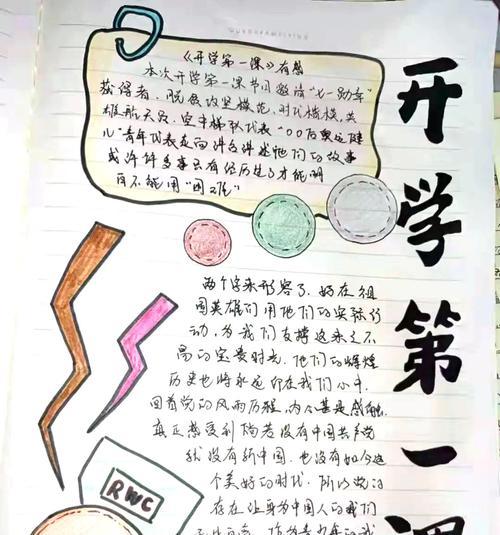 开学第一课
《开学第一课》有感
本次开学第一课节目邀请"七一勋章"
获得者、脱贫攻坚模范、时代楷模、英
雄航天员、空中梯队代表、"00"后奥运健
儿"青年代表走向讲台讲述他们的故事
或许许多事只有经历过了才能明
百不能用"困难"
两个字来形容了.好在祖
国英雄们用他们的实际行
动,为我们支撑这来之不
易的宝贵时光.他们的辉煌
历史也将永远印在我们心中.
回首党的风雨历程,内心甚是感触,
真正感受到倘若没有中国共产党
就没有新中国.也没有如今这
个美好的时代.所以党的
存在让身为中国人的我们
RWC